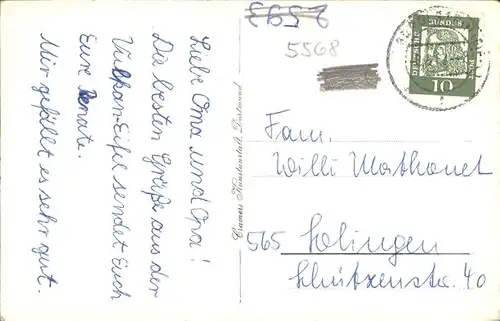 Liebe Oma und Opa!
Die besten Grüße aus der
Vulkan-Eifel sendet Euch
Eure Renate.
Mir gefällt es sehr gut.
Cramers Kunstanstalt, Dortmund
5568
DEUTSCHE BUNDES POST
10
Fam.
Willi Mathonet
565 Solingen
Schützenstr. 40